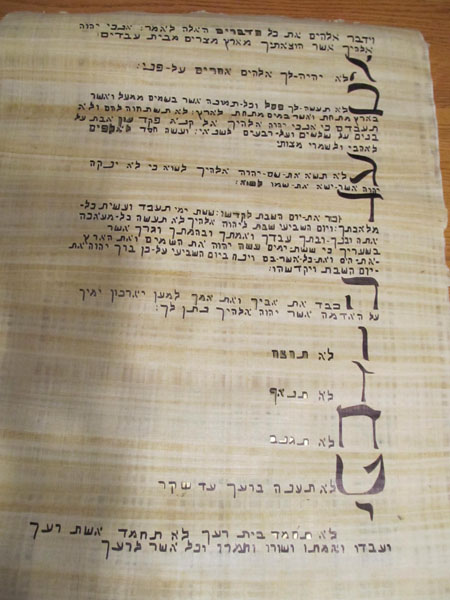 וידבר אלהים את כל הדברים האלה לאמר: אנכי יהוה
אלהיך אשר הוצאתיך מארץ מצרים מבית עבדים:
לא יהיה-לך אלהים אחרים על-פני:
לא תעשה-לך פסל וכל-תמונה אשר בשמים ממעל ואשר
בארץ מתחת ואשר במים מתחת לארץ: לא תשתחוה להם ולא
תעבדם כי אנכי יהוה אלהיך אל קנא פקד עון אבת על
בנים על שלשים ועל-רבעים לשנאי: ועשה חסד לאלפים
לאהבי ולשמרי מצותי
ג לא תשא את-שם-יהוה אלהיך לשוא כי לא ינקה
יהוה אשר-ישא את-שמו לשוא:
ד זכר את-יום השבת לקדשו: ששת ימי תעבד ועשית כל-
מלאכתך: ויום השביעי שבת ליהוה אלהיך לא תעשה כל-מלאכה
אתה ובנך-ובתך עבדך ואמתך ובהמתך וגרך אשר
בשעריך כי ששת-ימים עשה יהוה את השמים ואת הארץ
את-הים ואת-כל-אשר-בם וינח ביום השביעי על-כן ברך יהוה את
-יום השבת ויקדשהו:
ה כבד את אביך ואת אמך למען יארכון ימיך
על האדמה אשר יהוה אלהיך נתן לך:
ו לא תרצח
ז לא תנאף
ח לא תגנב
ט לא תענה ברעך עד שקר
י לא תחמד בית רעך לא תחמד אשת רעך
ועבדו ואמתו ושורו וחמרו וכל אשר לרעך